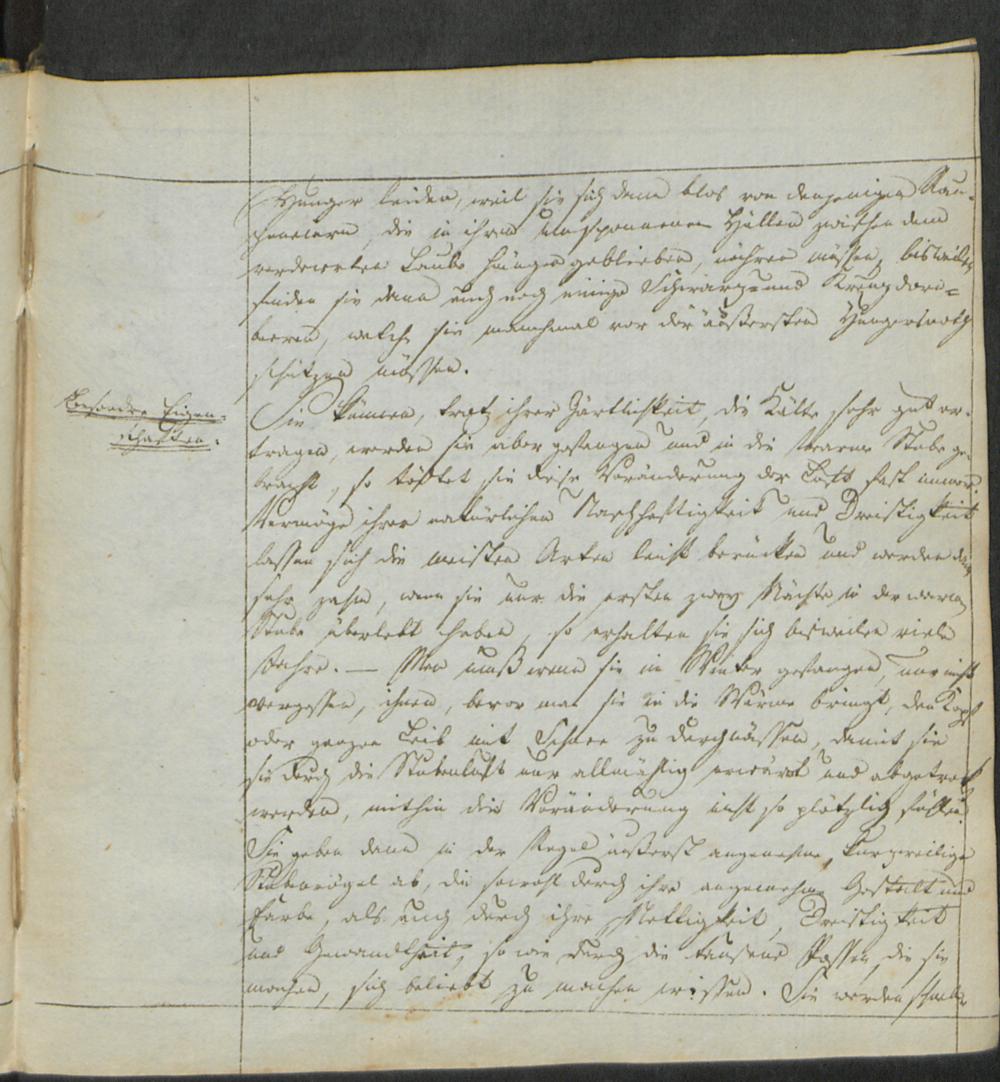 Hunger leiden, weil sie sich dann blos von denjenigen Rau-
peneiern, die in ihren umsponnenen Hüllen zwischen dem
verdorrten Laube hängen geblieben, nähren müssen, bisweilen
finden sie dann auch noch einige Schwarz- und Kreuzdorn-
beeren, welche sie manchmal vor der äußersten Hungersnoth
schützen müssen.
Besondre Eigen-
schaften.
Sie können, trotz ihrer Zärtlichkeit, die Kälte sehr gut er-
tragen, werden sie aber gefangen und in die warme Stube ge-
bracht, so tödtet sie diese Veränderung der Luft fast immer.
Vermöge ihrer natürlichen und Dreistigkeit
lassen sich die meisten Arten leicht berücken und werden
sehr zahm, wenn sie nur die ersten zwey Nächte in der warmen
Stube überlebt haben, so erhalten sie sich bisweilen viele
Jahre. — Man muß wenn sie im Winter gefangen, nur nicht
vergessen, ihnen, bevor man sie in die Wärme bringt, den Kopf
oder ganzen Leib mit Schnee zu durchnässen, damit sie
sie durch die Stubenluft nur allmählig erwärmt und abgetrocknet
werden, mithin die Veränderung nicht so plötzlich fühlen.
Sie geben dann in der Regel äußerst angenehme, kurzweilige
Stubenvögel ab, die sowohl durch ihre angenehme Gestalt und
Farbe, als auch durch ihre Dreistigkeit
und Gewandtheit, so wie durch die tausend Possen, die sie
machen, sich beliebt zu machen wissen. Sie werden